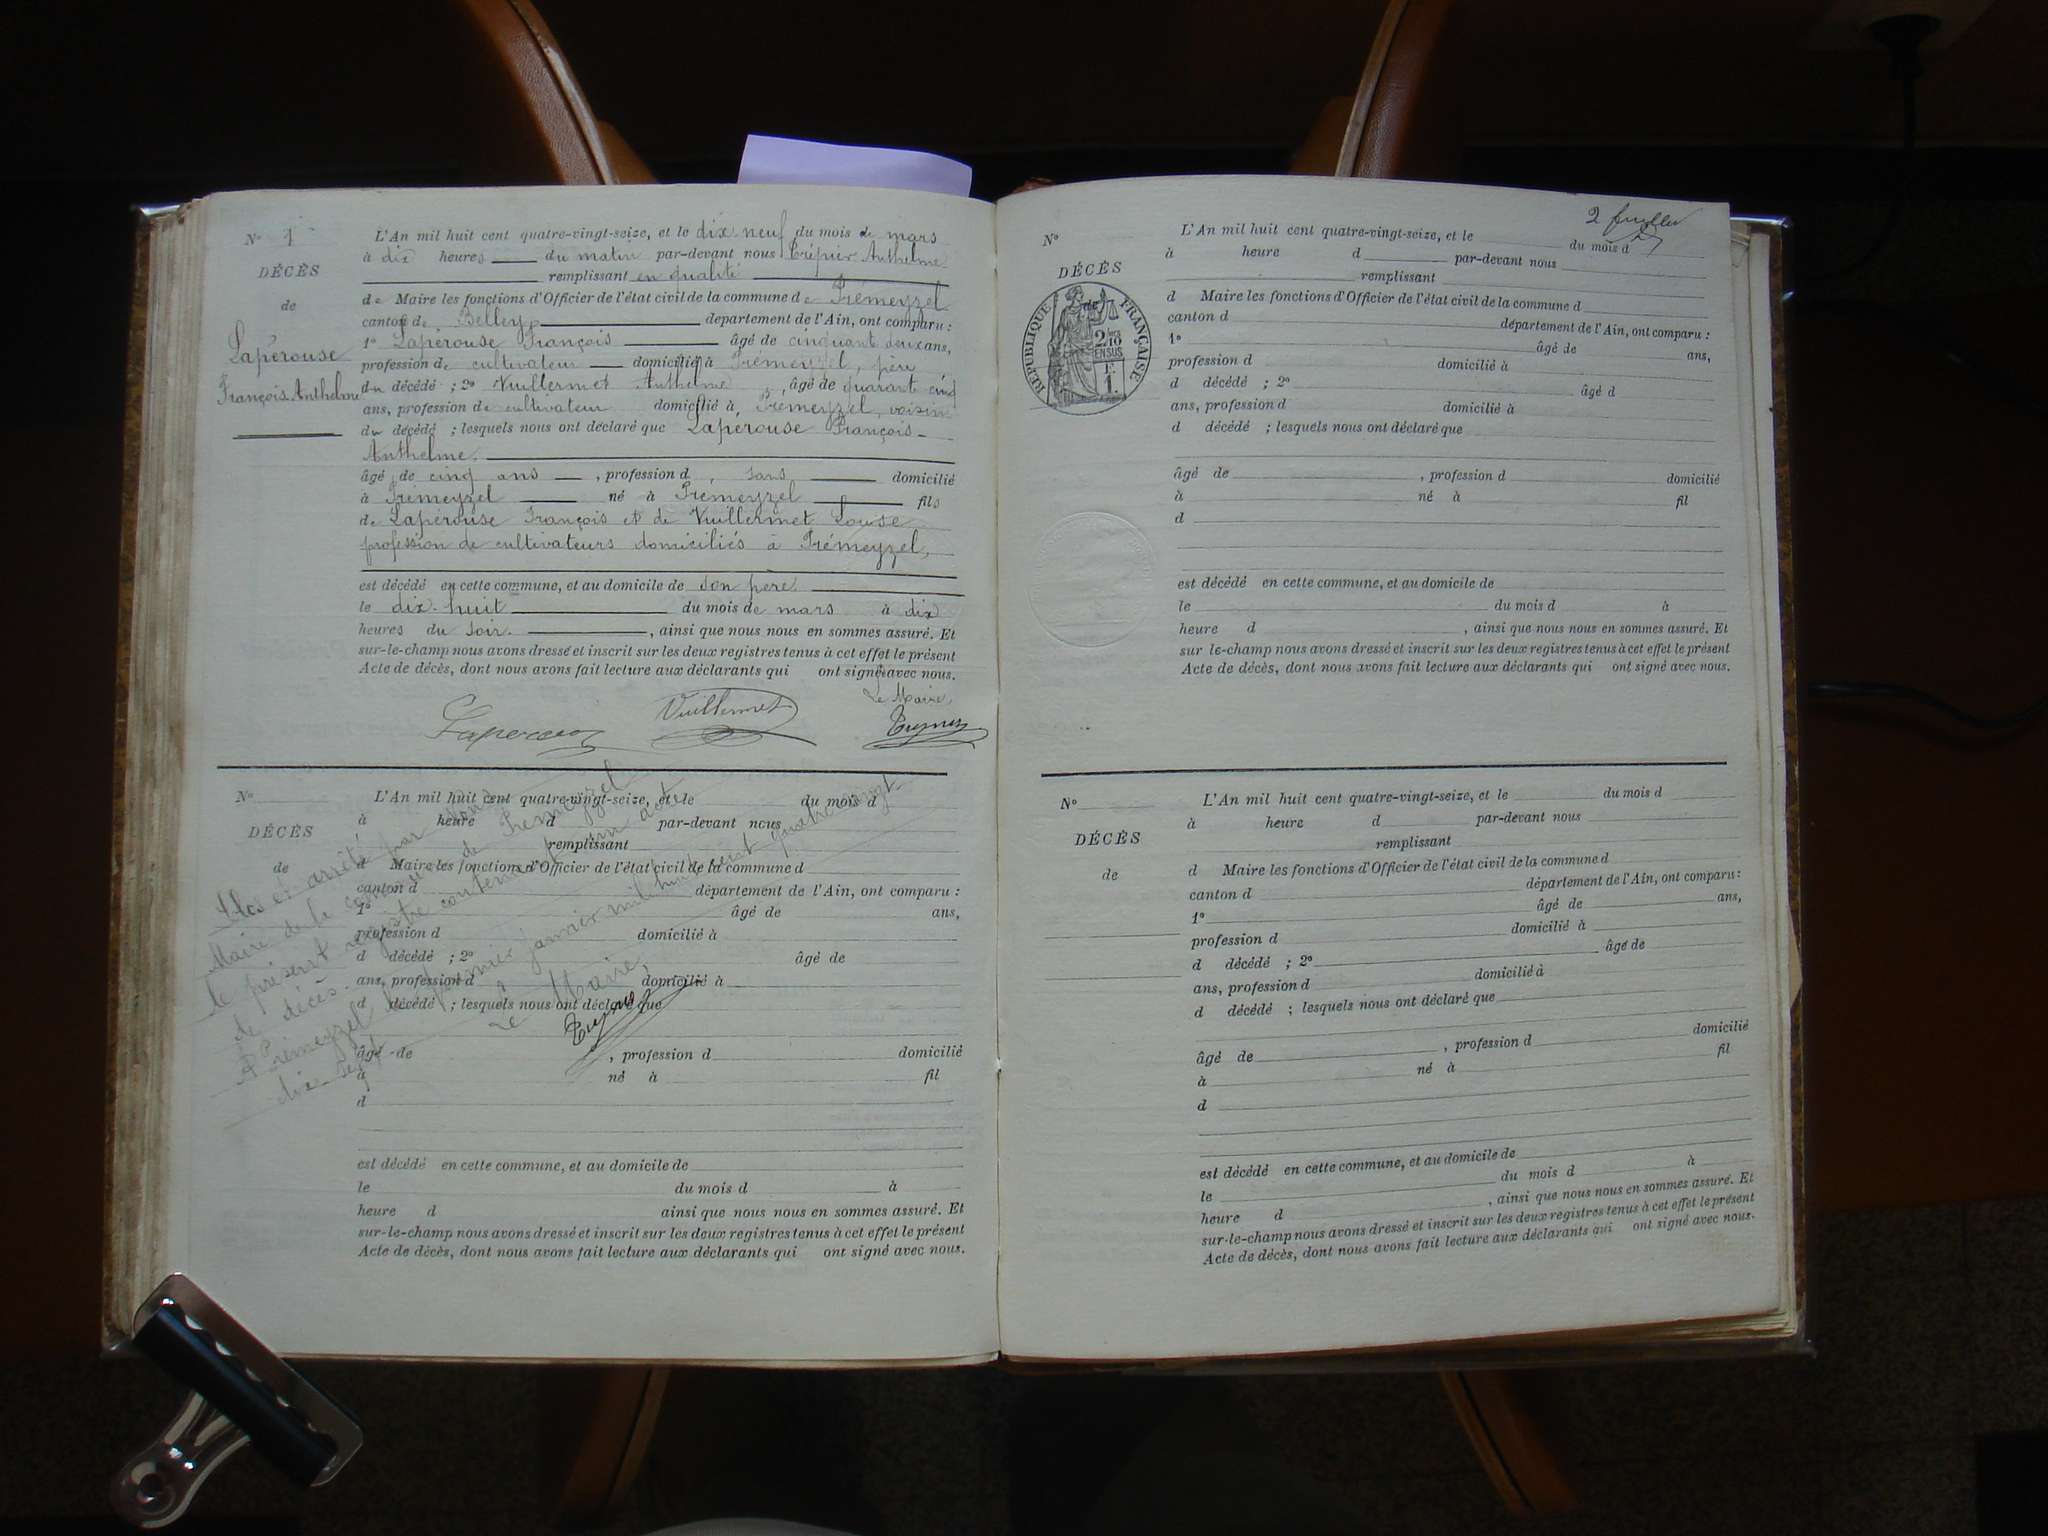 N° 1
DÉCÈS
de
Lapérouse
François Anthelme
L'An mil huit cent quatre-vingt-seize, et le dix neuf du mois de mars
à dix heures du matin par-devant nous Trépier Anthelme
remplissant en qualité
de Maire les fonctions d'Officier de l'état civil de la commune de Prémeyzel
canton de Belley département de l'Ain, ont comparu :
1° Lapérouse François âgé de cinquant deux ans,
profession de cultivateur domicilié à Prémeyzel, père
du décédé ; 2° Vuillermet Anthelme, âgé de quarant cinq
ans, profession de cultivateur domicilié à, Prémeyzel, voisin
du décédé ; lesquels nous ont déclaré que Lapérouse François-
Anthelme.
âgé de cinq ans, profession d, sans domicilié
à Prémeyzel né à Prémeyzel fils
de Lapérouse François et de Vuillermet Louse
profession de cultivateurs domiciliés à Prémeyzel,
est décédé en cette commune, et au domicile de son père
le dix-huit du mois de mars à dix
heures du soir. , ainsi que nous nous en sommes assuré. Et
sur-le-champ nous avons dressé et inscrit sur les deux registres tenus à cet effet le présent
Acte de décès, dont nous avons fait lecture aux déclarants qui ont signé avec nous.
Le Maire,
Vuillermet
N°
DÉCÈS
de
L'An mil huit cent quatre-vingt-seize, et le du mois d
à heure d par-devant nous
remplissant
d Maire les fonctions d'Officier de l'état civil de la commune d
canton d département de l'Ain, ont comparu :
1° âgé de ans,
profession d domicilié à
d décédé ; 2° âgé de
ans, profession d domicilié à
d décédé ; lesquels nous ont déclaré que
âgé de , profession d domicilié
à né à fil
d
est décédé en cette commune, et au domicile de
le du mois d à
heure d ainsi que nous nous en sommes assuré. Et
sur-le-champ nous avons dressé et inscrit sur les deux registres tenus à cet effet le présent
Acte de décès, dont nous avons fait lecture aux déclarants qui ont signé avec nous.
Clos et arrêté par nous
Maire de la commune de Prémeyzel
le présent registre contenant un acte
de décès.
A Prémeyzel le premier janvier mil huit cent quatre vingt
dix sept
Le Maire,
2
N°
DÉCÈS
de
RÉPUBLIQUE FRANÇAISE
2/10
EN SUS
1 F.
L'An mil huit cent quatre-vingt-seize, et le du mois d
à heure d par-devant nous
remplissant
d Maire les fonctions d'Officier de l'état civil de la commune d
canton d département de l'Ain, ont comparu :
1° âgé de ans,
profession d domicilié à
d décédé ; 2° âgé d
ans, profession d domicilié à
d décédé ; lesquels nous ont déclaré que
âgé de , profession d domicilié
à né à fil
d
est décédé en cette commune, et au domicile de
le du mois d à
heure d , ainsi que nous nous en sommes assuré. Et
sur le-champ nous avons dressé et inscrit sur les deux registres tenus à cet effet le présent
Acte de décès, dont nous avons fait lecture aux déclarants qui ont signé avec nous.
N°
DÉCÈS
de
L'An mil huit cent quatre-vingt-seize, et le du mois d
à heure d par-devant nous
remplissant
d Maire les fonctions d'Officier de l'état civil de la commune d
canton d département de l'Ain, ont comparu:
1° âgé de ans,
profession d domicilié à
d décédé ; 2° âgé de
ans, profession d domicilié à
d décédé ; lesquels nous ont déclaré que
âgé de , profession d domicilié
à né à fil
d
est décédé en cette commune, et au domicile de
le du mois d à
heure d , ainsi que nous nous en sommes assuré. Et
sur-le-champ nous avons dressé et inscrit sur les deux registres tenus à cet effet le présent
Acte de décès, dont nous avons fait lecture aux déclarants qui ont signé avec nous.